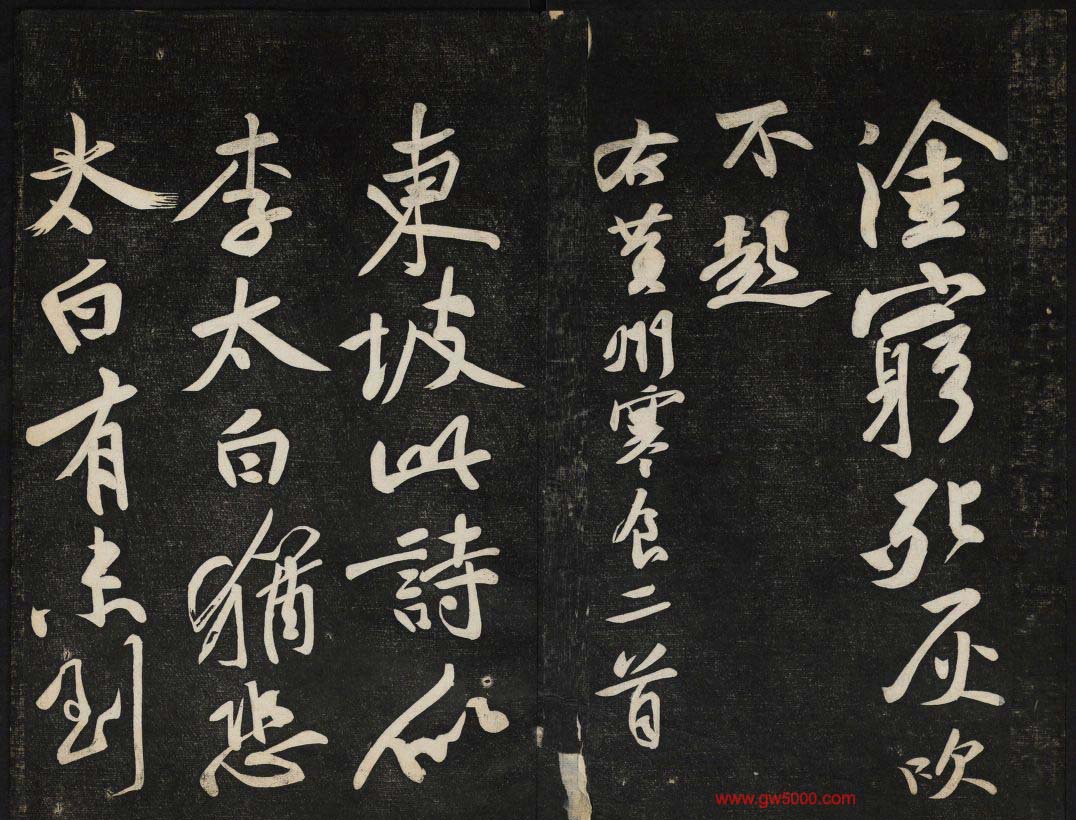 塗窮死灰吹
不起
右黃州寒食二首
東坡此詩似
李太白猶恐
太白有未到
www.gw5000.com